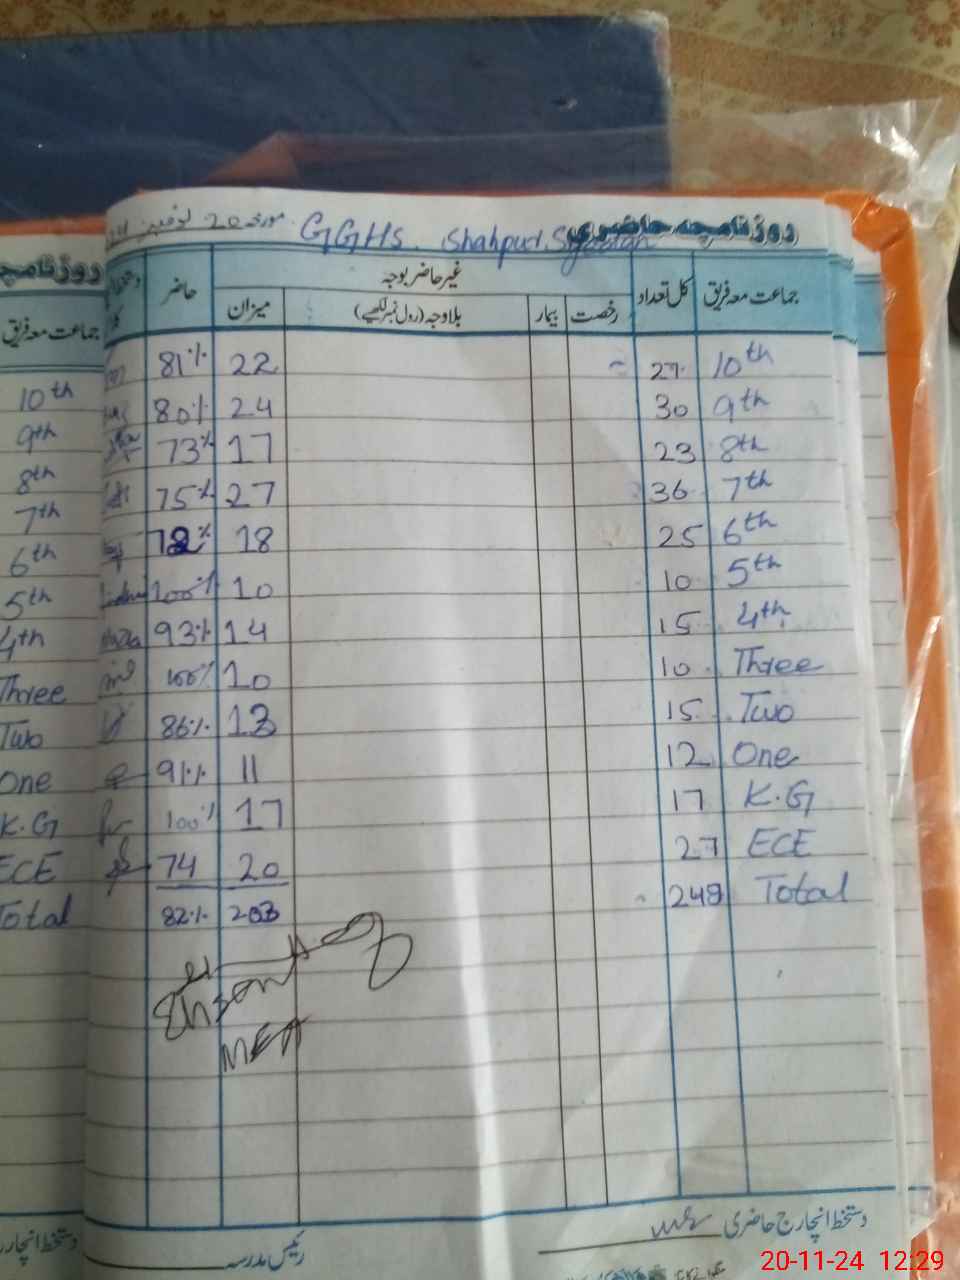 روزنامچہ حاضری GGHS. Shahpur مورخہ 20 نومبر
جماعت معہ فریق کل تعداد غیر حاضر بوجہ حاضر
رخصت بیمار بلاوجہ (رول نمبر لکھیے) میزان
10th 27 22 81%
9th 30 24 80%
8th 23 17 73%
7th 36 27 75%
6th 25 18
5th 10 10 100%
4th 15 14 93%
Three 10 10 100%
Two 15 13 86%
One 12 11 91%
K.G 17 17 100%
ECE 27 20 74
Total 203 82%
MEA
دستخط انچارج حاضری
رئیس مدرسہ
روزنامچہ
جماعت معہ فریق
10th
9th
8th
7th
6th
5th
4th
Three
Two
One
K.G
ECE
Total
دستخط انچارج
20-11-24 12:29